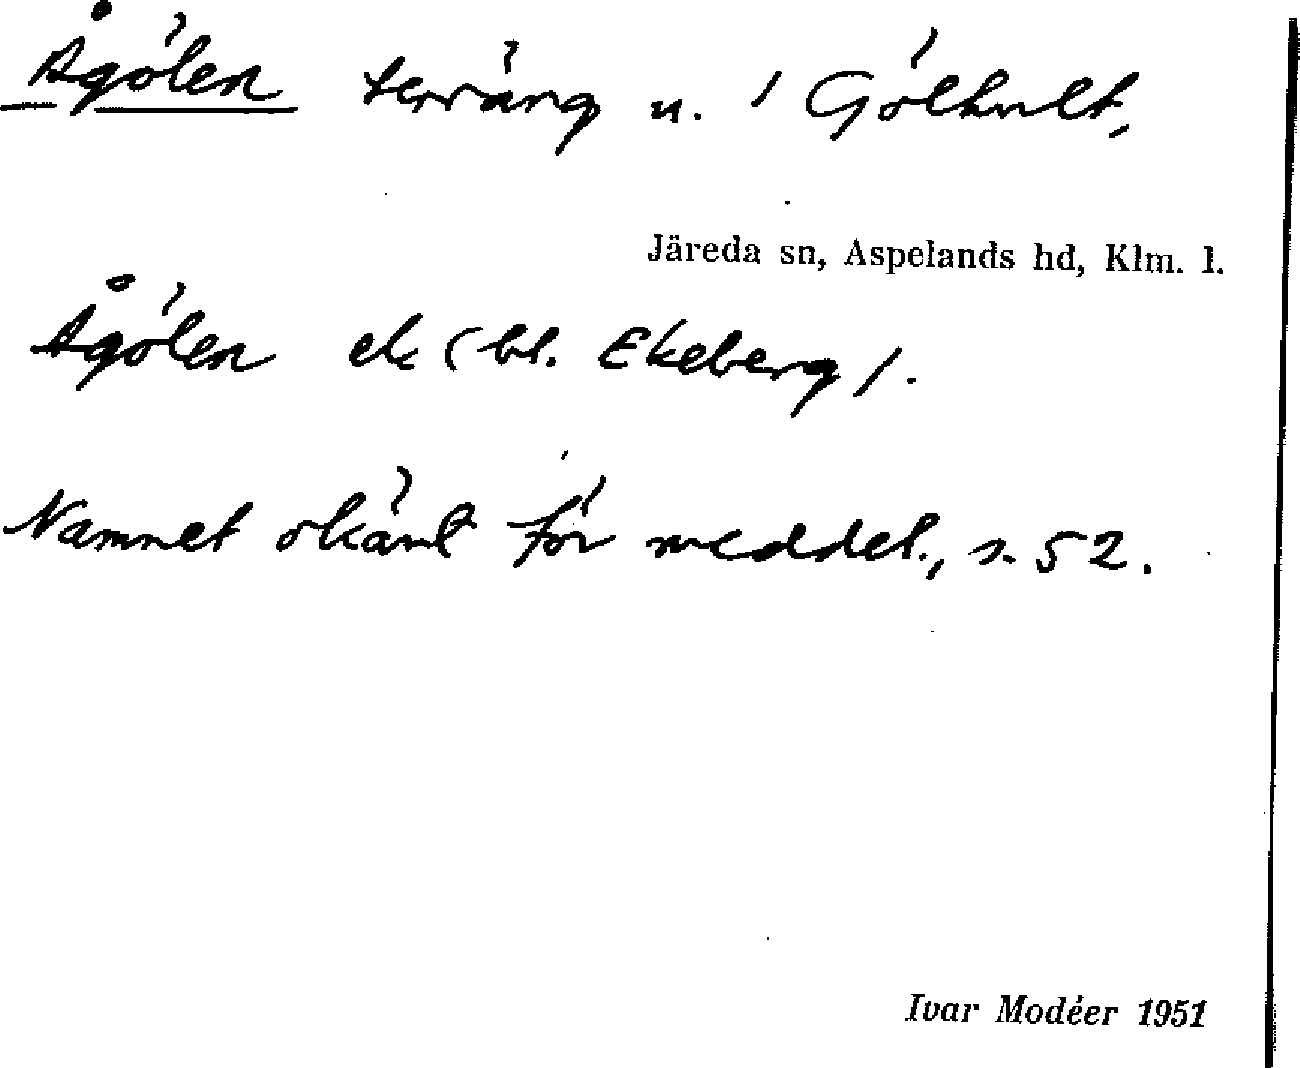 Ågölen terräng u. i Gölhult,
Järeda sn, Aspelands hd, Klm. l.
Ågölen ek (bl. Ekeberg).
Namnet okänt för meddel., s. 52.
Ivar Modéer 1951